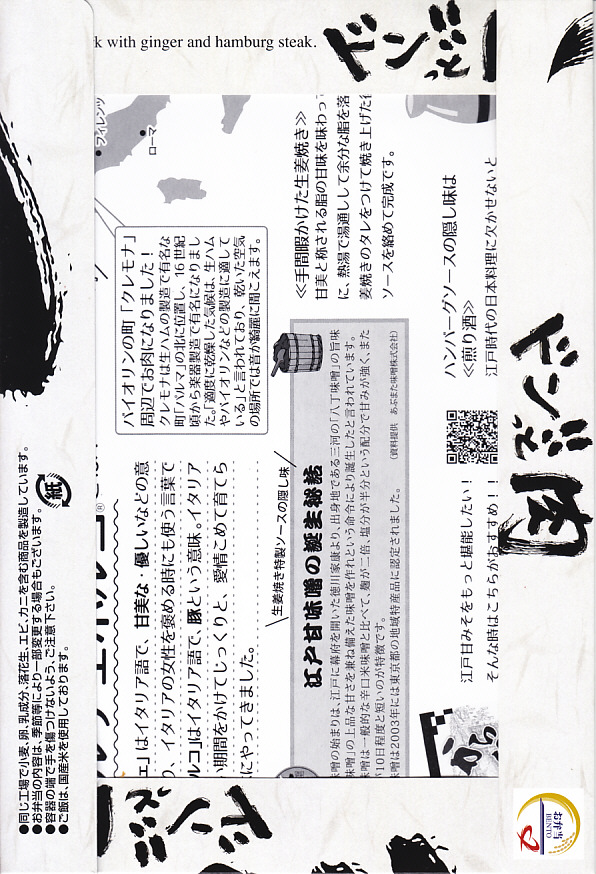 k with ginger and hamburg steak.
ドン
●同じ工場で小麦、卵、乳成分、落花生、エビ、カニを含む商品を製造しています。
●お弁当の内容は、季節等により一部変更する場合もございます。
●容器の端で手を傷つけないよう、ご注意下さい。
●ご飯は、国産米を使用しております。
紙
フィレンツ
ローマ
バイオリンの町「クレモナ」
周辺でお肉になりました！
クレモナは生ハムの製造で有名な
町「パルマ」の北に位置し、16世紀
頃から楽器製造で有名になりまし
た。「適度に乾燥した気候は、生ハム
やバイオリンなどの製造に適して
いる」と言われており、乾いた空気
の場所では音が綺麗に聞こえます。
エ」はイタリア語で、甘美な・優しいなどの意
り、イタリアの女性を褒める時にも使う言葉で
ルコ」はイタリア語で、豚という意味。イタリア
い期間をかけてじっくりと、愛情こめて育てら
にやってきました。
≪手間暇かけた生姜焼き≫
甘美と称される脂の甘味を味わっ
に、熱湯で湯通しして余分な脂を落
姜焼きのタレをつけて焼き上げた後
ソースを絡めて完成です。
生姜焼き特製ソースの隠し味
江戸甘味噌の誕生秘話
味噌の始まりは、江戸に幕府を開いた徳川家康より、出身地である三河の「八丁味噌」の旨味
味噌」の上品な甘さを兼ね備えた味噌を作れという命令により誕生したと言われています。
味噌は一般的な辛口米味噌と比べて、麹が二倍、塩分が半分という配分で甘みが強く、また
が10日程度と短いのが特徴です。
味噌は2003年には東京都の地域特産品に認定されました。
（資料提供　あぶまた味噌株式会社）
ハンバーグソースの隠し味は
≪煎り酒≫
江戸時代の日本料理に欠かせないと
江戸甘みそをもっと堪能したい！
そんな時はこちらがおすすめ！！
から
肉
お弁当
BENTO